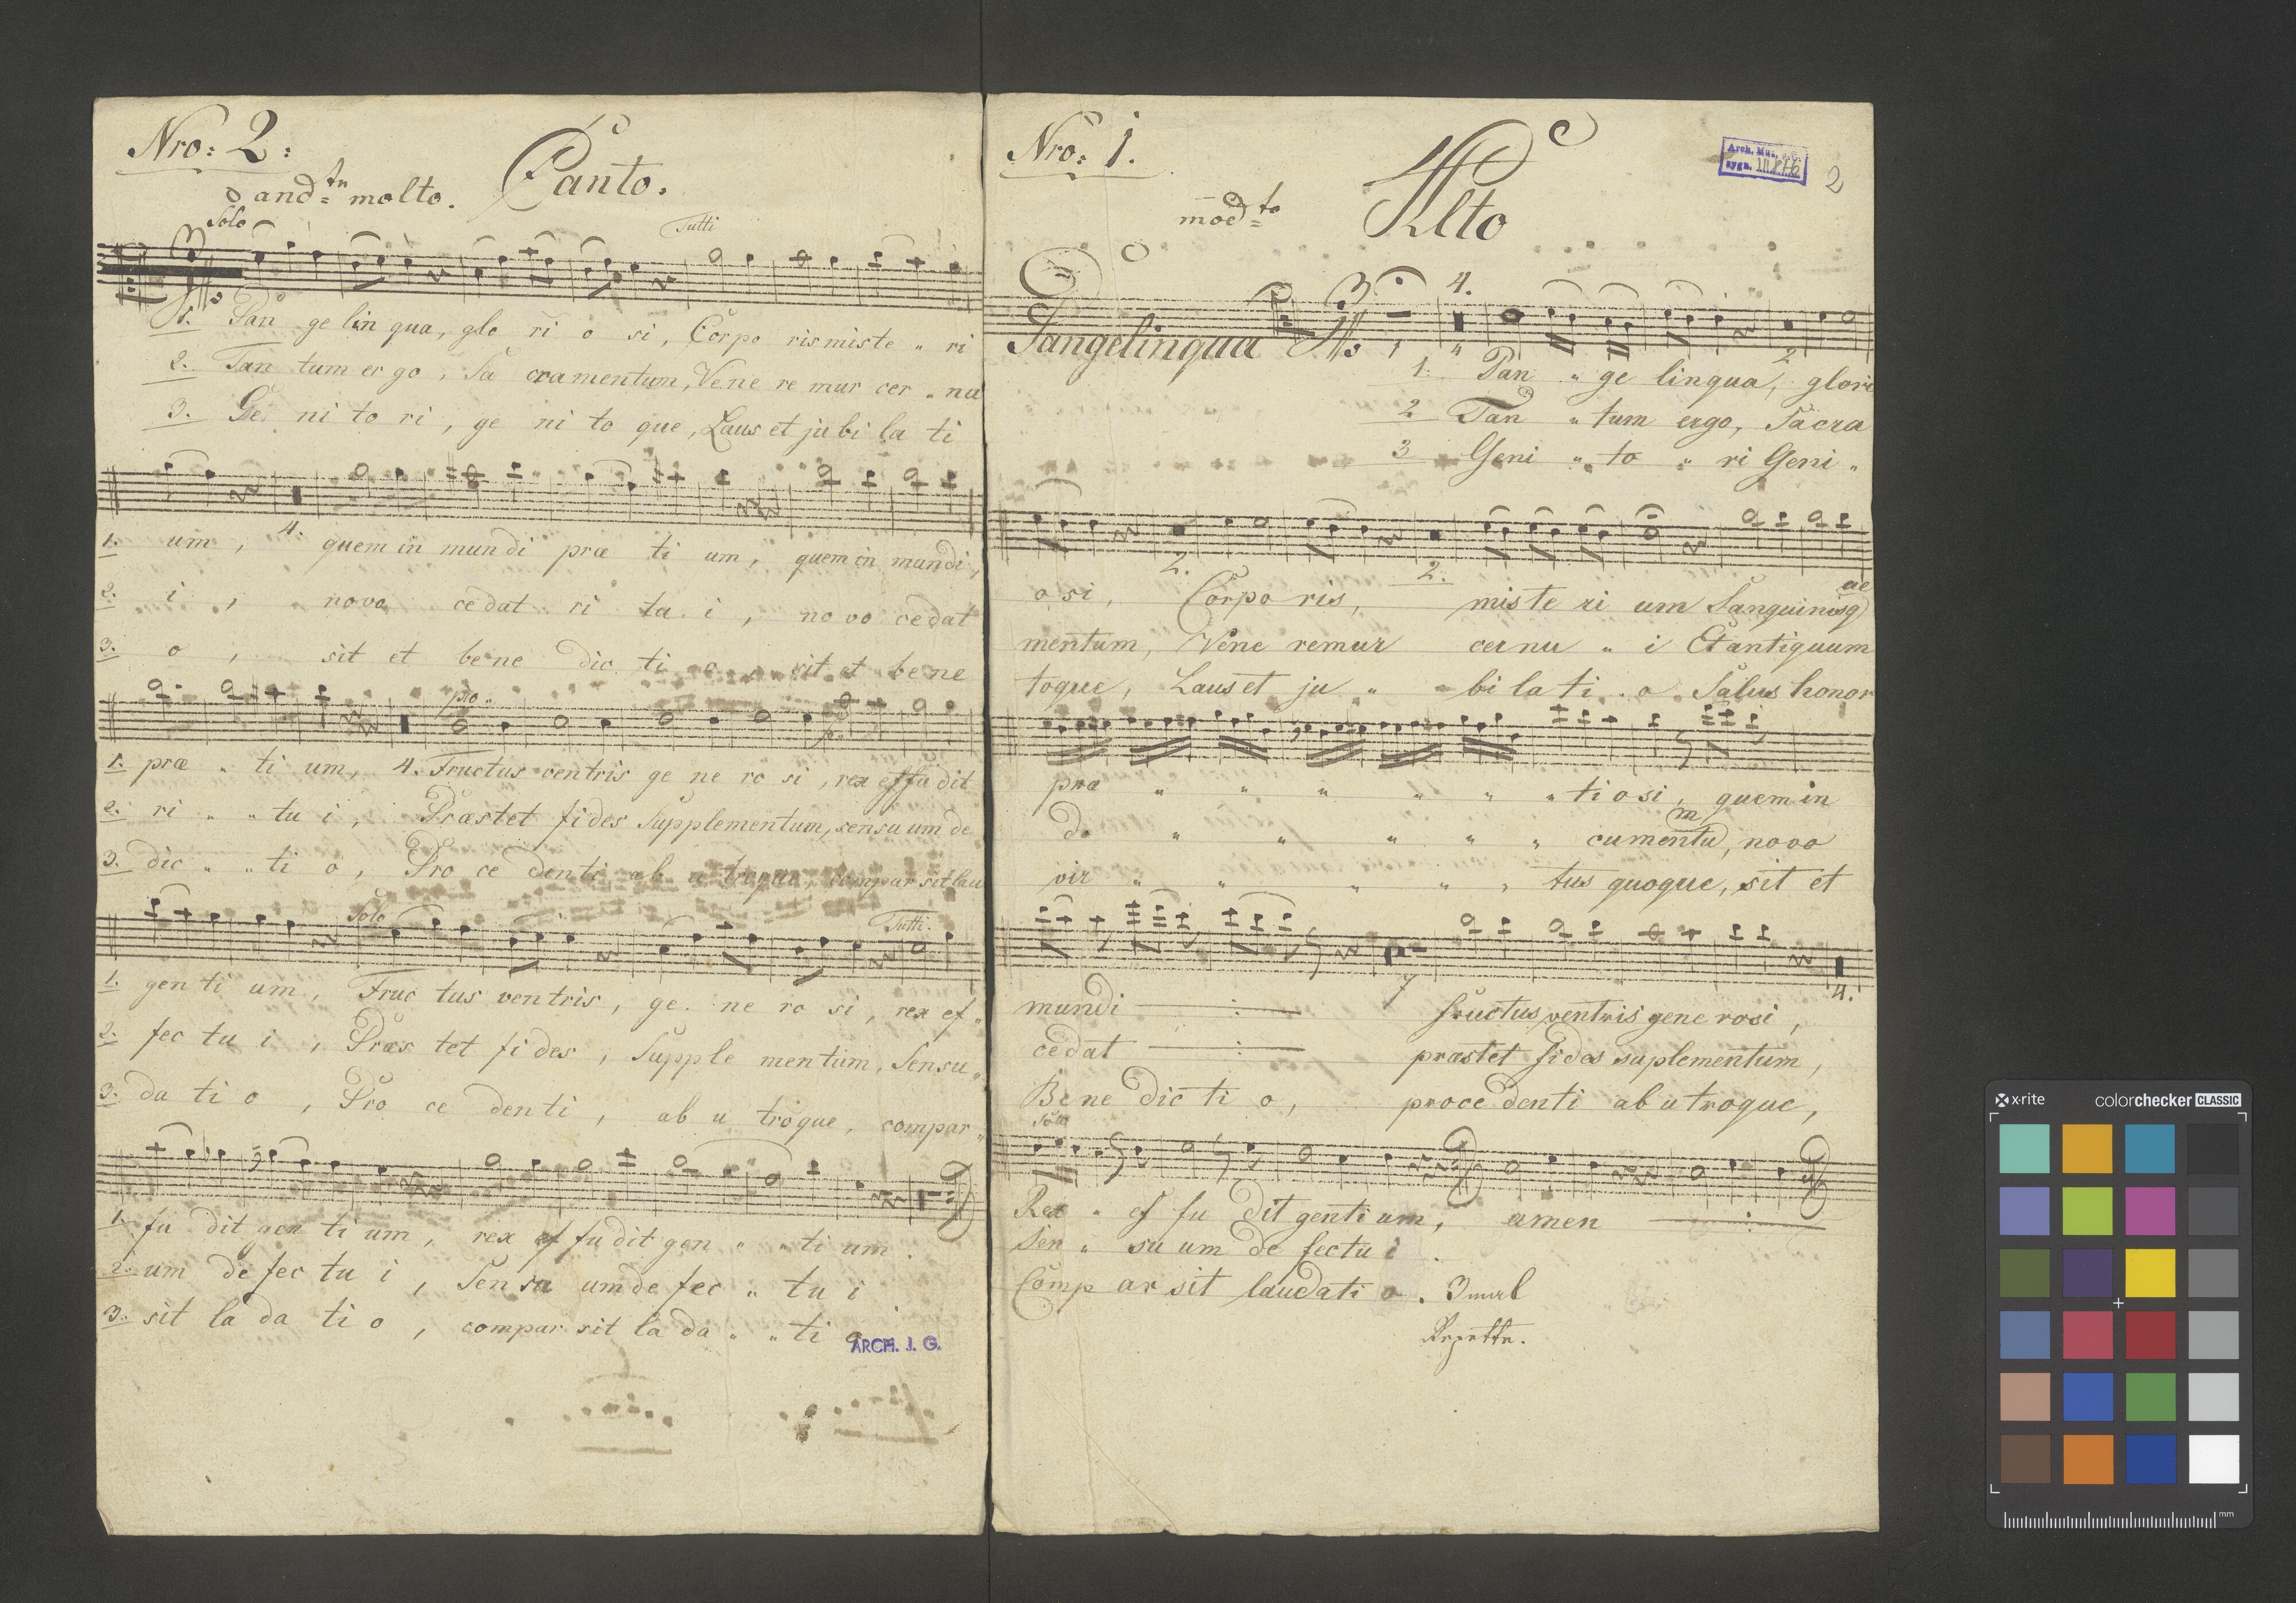 Nro: 2:
Canto.
andte molto.
Solo
Tutti
1. Pan ge lin qua, glo ri o si, Corpo ris miste " ri
2. Tan tum er go, Sa cramentum, Vene re mur cer " nu
3. Ge ni to ri, ge ni to que, Laus et jubi la ti
4.
1. um, quem in mundi præ ti um, quem in mundi,
2. i, novo cedat ri tu i, no vo cedat
3. o, sit et bene dic ti o, sit et bene
pio.
1. præ " ti um, 4. Fructus ventris ge ne ro si, rex effu dit
2. ri " " tu i, Præstet fides Supplementum, sensu um de
3. dic " " ti o, Pro ce denti ab u troque, compar sit lau
Solo
Tutti.
1. gen ti um, Fruc tus ventris, ge ne ro si, rex ef "
2. fec tu i, Præs tet fi des, Supple mentum, Sensu "
3. da ti o, Pro ce denti, ab u troque, compar "
1. fu dit gen ti um, rex ef fu dit gen " " ti um.
2. um de fec tu i, Sen su um de fec " tu i
3. sit la da ti o, compar sit la da " " ti o
ARCH. J. G.
Nro: 1.
Alto
modto
Arch. Mus. J. G.
sygn. III
2
4.
Pangelinqua
1 " 2
1. Pan " ge linqua, glori
2 Tan " tum ergo, Sacra
3 Geni " to " ri Geni "
2. 2.
o si, Corpo ris, miste ri um Sanguinisq ae
mentum, Vene remur cernu " i Et antiquum
toque, Laus et ju " bi la ti o Salus honor
præ " " " " " " ti o si, quem in
do " " " " " cumentu m, novo
vir " " " " " tus quoque, sit et
7 4.
mundi fructus ventris gene rosi,
cedat præstet fides suplementum,
Bene dic ti o, proce denti ab utroque,
Solo
Rex " ef fu dit genti um, amen
Sen " su um de fectu i
Comp ar sit laudati o. 3mal
Repette.
x-rite colorchecker CLASSIC
mm